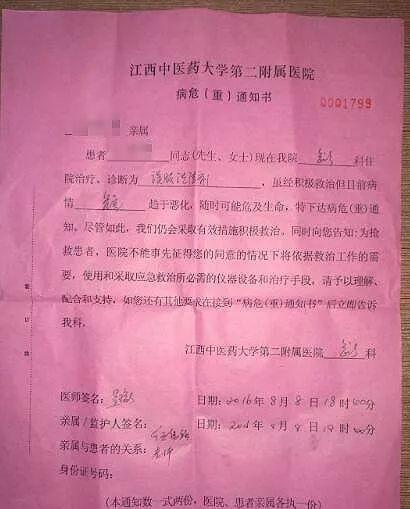 江西中医药大学第二附属医院
病危(重)通知书
0001799
亲属
患者 同志(先生、女士)现在我院 急诊 科住
院治疗、诊断为 误服洗涤剂 ,虽经积极救治但目前病
情 趋于恶化,随时可能危及生命,特下达病危(重)通
知。尽管如此,我们仍会采取有效措施积极救治。同时向您告知:为抢
救患者,医院不能事先征得您的同意的情况下将依据救治工作的需
要,使用和采取应急救治所必需的仪器设备和治疗手段,请予以理解、
配合和支持,如您还有其他要求在接到“病危(重)通知书”后立即告诉
我科。
江西中医药大学第二附属医院 急诊 科
医师签名: 日期:2016年8月8日18时00分
亲属/监护人签名: 日期:2016年8月8日18时00分
亲属与患者的关系:
身份证号码:
(本通知数一式两份,医院、患者亲属各执一份)